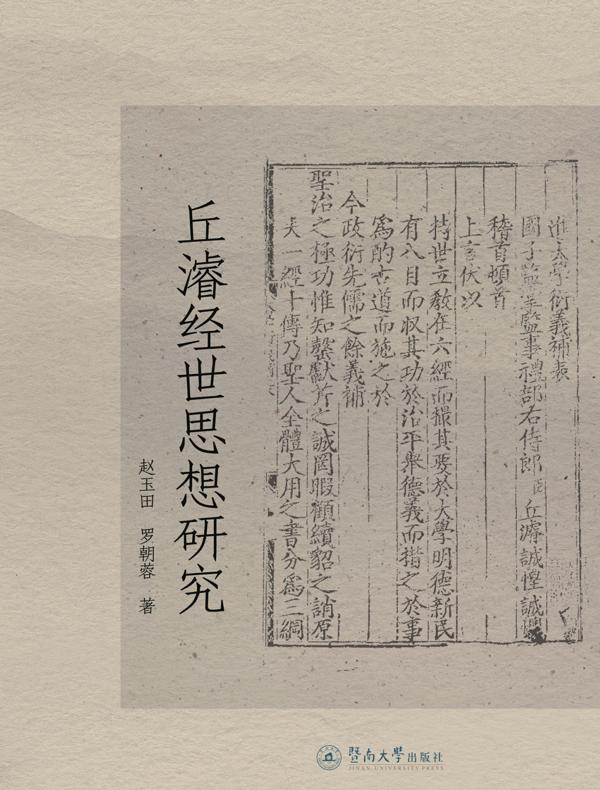 丘濬经世思想研究
赵玉田 罗朝蓉 著
進大學衍義補表
國子監掌監事禮部右侍郎臣丘濬誠惶誠懼
稽首頓首
上言伏以
持世立教在六經而撮其要於大學明德新民
有八目而収其功於治平舉德義而措之於事
為酌古道而施之於
今政衍先儒之餘義補
聖治之極功惟知罄獻芹之誠罔暇顧續貂之誚原
夫一經十傳乃聖人全體大用之書分為三綱
暨南大學出版社
JINAN UNIVERSITY PRESS